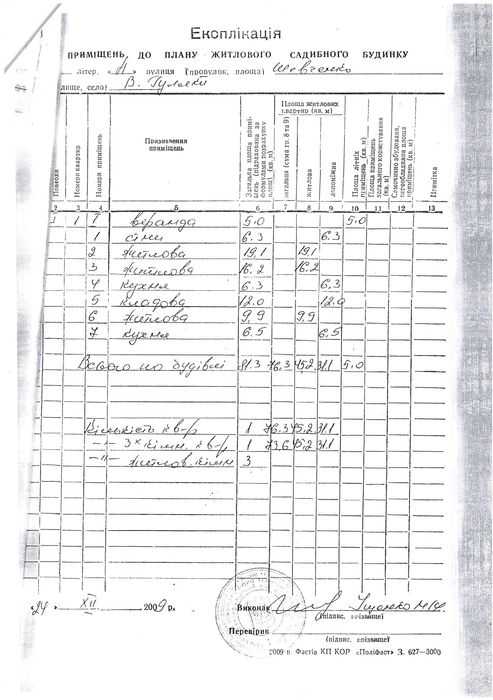 Експлікація
ПРИМІЩЕНЬ, ДО ПЛАНУ ЖИТЛОВОГО САДИБНОГО БУДИНКУ
літер. А вулиця (провулок, площа) Шевченко
лище, село) В. Гуляки
Поверхи
Номери квартир
Номери приміщень
Призначення приміщень
Загальна площа приміщень (підрахована за формулами розрахунку площі) (кв. м)
Площа житлових квартир (кв. м)
загальна (сума гр. 8 та 9)
житлова
допоміжна
Площа літніх приміщень (кв. м)
Площа приміщень загального користування (кв. м)
Самочинно збудована, переобладнана площа приміщень (кв. м)
Примітка
2 3 4 5 6 7 8 9 10 11 12 13
1 1 I веранда 5.0 5.0
1 сіни 6.3 6.3
2 житлова 19,1 19,1
3 житлова 16.2 16.2
4 кухня 6.3 6.3
5 кладова 12.0 12.0
6 житлова 9.9 9.9
7 кухня 6.5 6,5
Всього по будівлі 81.3 76.3 45.2 31.1 5.0
Кількість кв-р 1 76.3 45.2 31.1
-"- 3х кімн. кв-р 1 73,6 45.2 31.1
-"- житлов. кімн 3
"24" XII 2009 р.
Виконав Іщенко
(підпис, прізвище)
Перевірив
(підпис, прізвище)
2009 р. Фастів КП КОР «Поліфаст» З. 627—3000